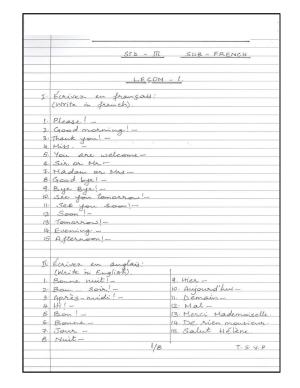 STD - III SUB - FRENCH
LEÇON - 1.
I. Écrivez en français:
(Write in french)
1. Please! -
2. Good morning! -
3. Thank you! -
4. Miss. -
5. You are welcome -
6. Sir or Mr -
7. Madam or Mrs -
8. Good bye! -
9. Bye Bye! -
10. See you tomorrow! -
11. See you soon! -
12. Soon! -
13. Tomorrow! -
14. Evening -
15. Afternoon! -
II. Écrivez en anglais:
(Write in English)
1. Bonne nuit! -
2. Bon soir! -
3. Après-midi! -
4. Hi! -
5. Bon! -
6. Bonne -
7. Jour -
8. Nuit -
9. Hier -
10. Aujourd'hui -
11. Demain -
12. Mal -
13. Merci Mademoiselle
14. De rien monsieur
15. Salut Hélène
1/8 T-S-V-P